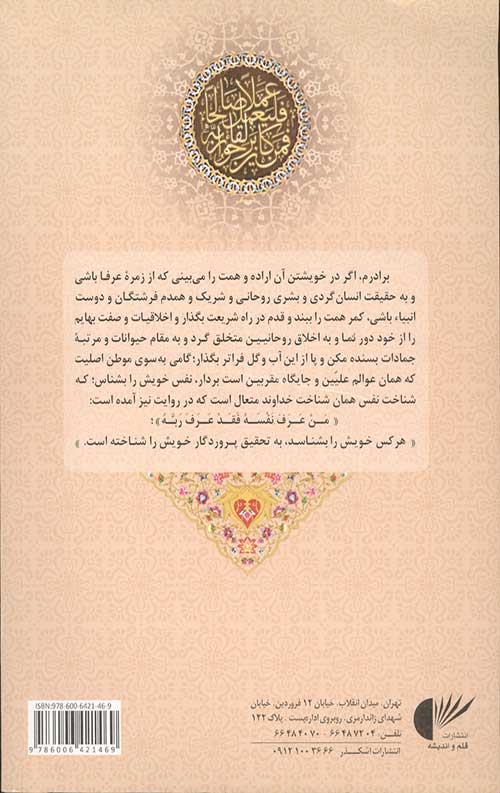 فمن كان يرجوا لقاء ربه
فليعمل
عملا صالحا
برادرم، اگر در خویشتن آن اراده و همت را می‌بینی که از زمرهٔ عرفا باشی
و به حقیقت انسان گردی و بشری روحانی و شریک و همدم فرشتگان و دوست
انبیاء باشی، کمر همت را ببند و قدم در راه شریعت بگذار و اخلاقیات و صفت بهایم
را از خود دور نما و به اخلاق روحانیین متخلق گرد و به مقام حیوانات و مرتبهٔ
جمادات بسنده مکن و پا از این آب و گل فراتر بگذار؛ گامی به‌سوی موطن اصلیت
که همان عوالم علیّین و جایگاه مقربین است بردار، نفس خویش را بشناس؛ که
شناخت نفس همان شناخت خداوند متعال است که در روایت نیز آمده است:
« مَـنْ عَـرَفَ نَـفْسَـهُ فَـقَـدْ عَـرَفَ رَبَّـهُ »؛
« هر کس خویش را بشناسد، به تحقیق پروردگار خویش را شناخته است. »
ISBN:978-600-6421-46-9
9 786006 421469
تهران، میدان انقلاب، خیابان ۱۲ فروردین، خیابان
شهدای ژاندارمری، روبروی اداره‌پست . پلاک ۱۲۲
تلفن: ۶۶۴۸۷۲۰۴ - ۶۶۴۸۴۰۷۰
انتشارات اشکـذر ۰۹۱۲۱۰۰۳۶۶۶
انتشارات
قلم و اندیشه